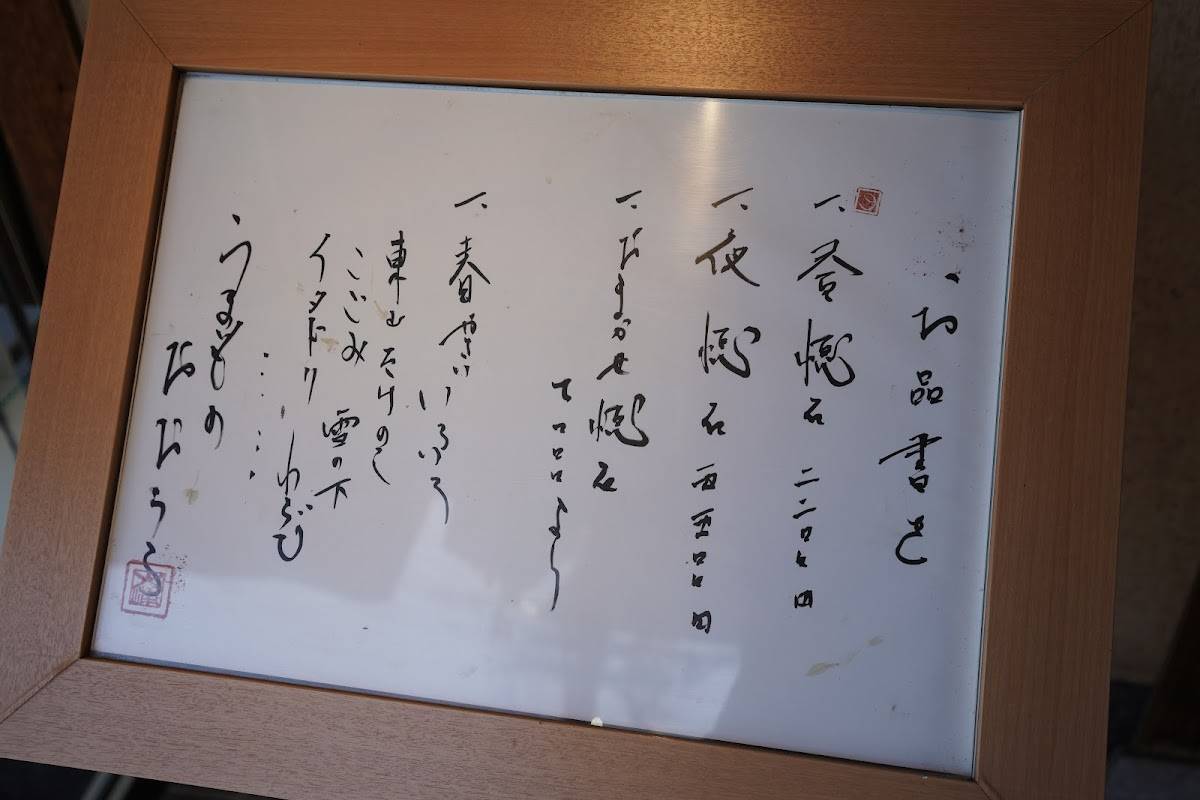 お品書き
一、昼懐石 二二〇〇円
一、夜懐石
一、おまかせ懐石
七〇〇〇より
一、春やさい
いろいろ
東山たけのこ
こごみ 雪の下
イタドリ わらび
うまいもの
おおうら